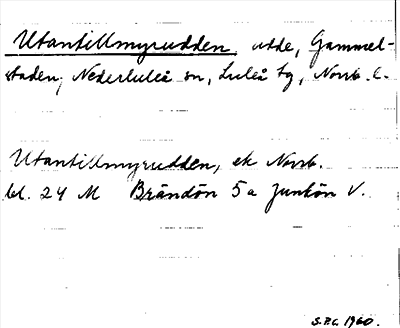 Utantillmyrudden, udde, Gammel-
staden, Nederluleå sn, Luleå tg, Norrb. l.
Utantillmyrudden, ek Norrb.
bl. 24 M Brändön 5a Junkön V.
S.F.C. 1960.